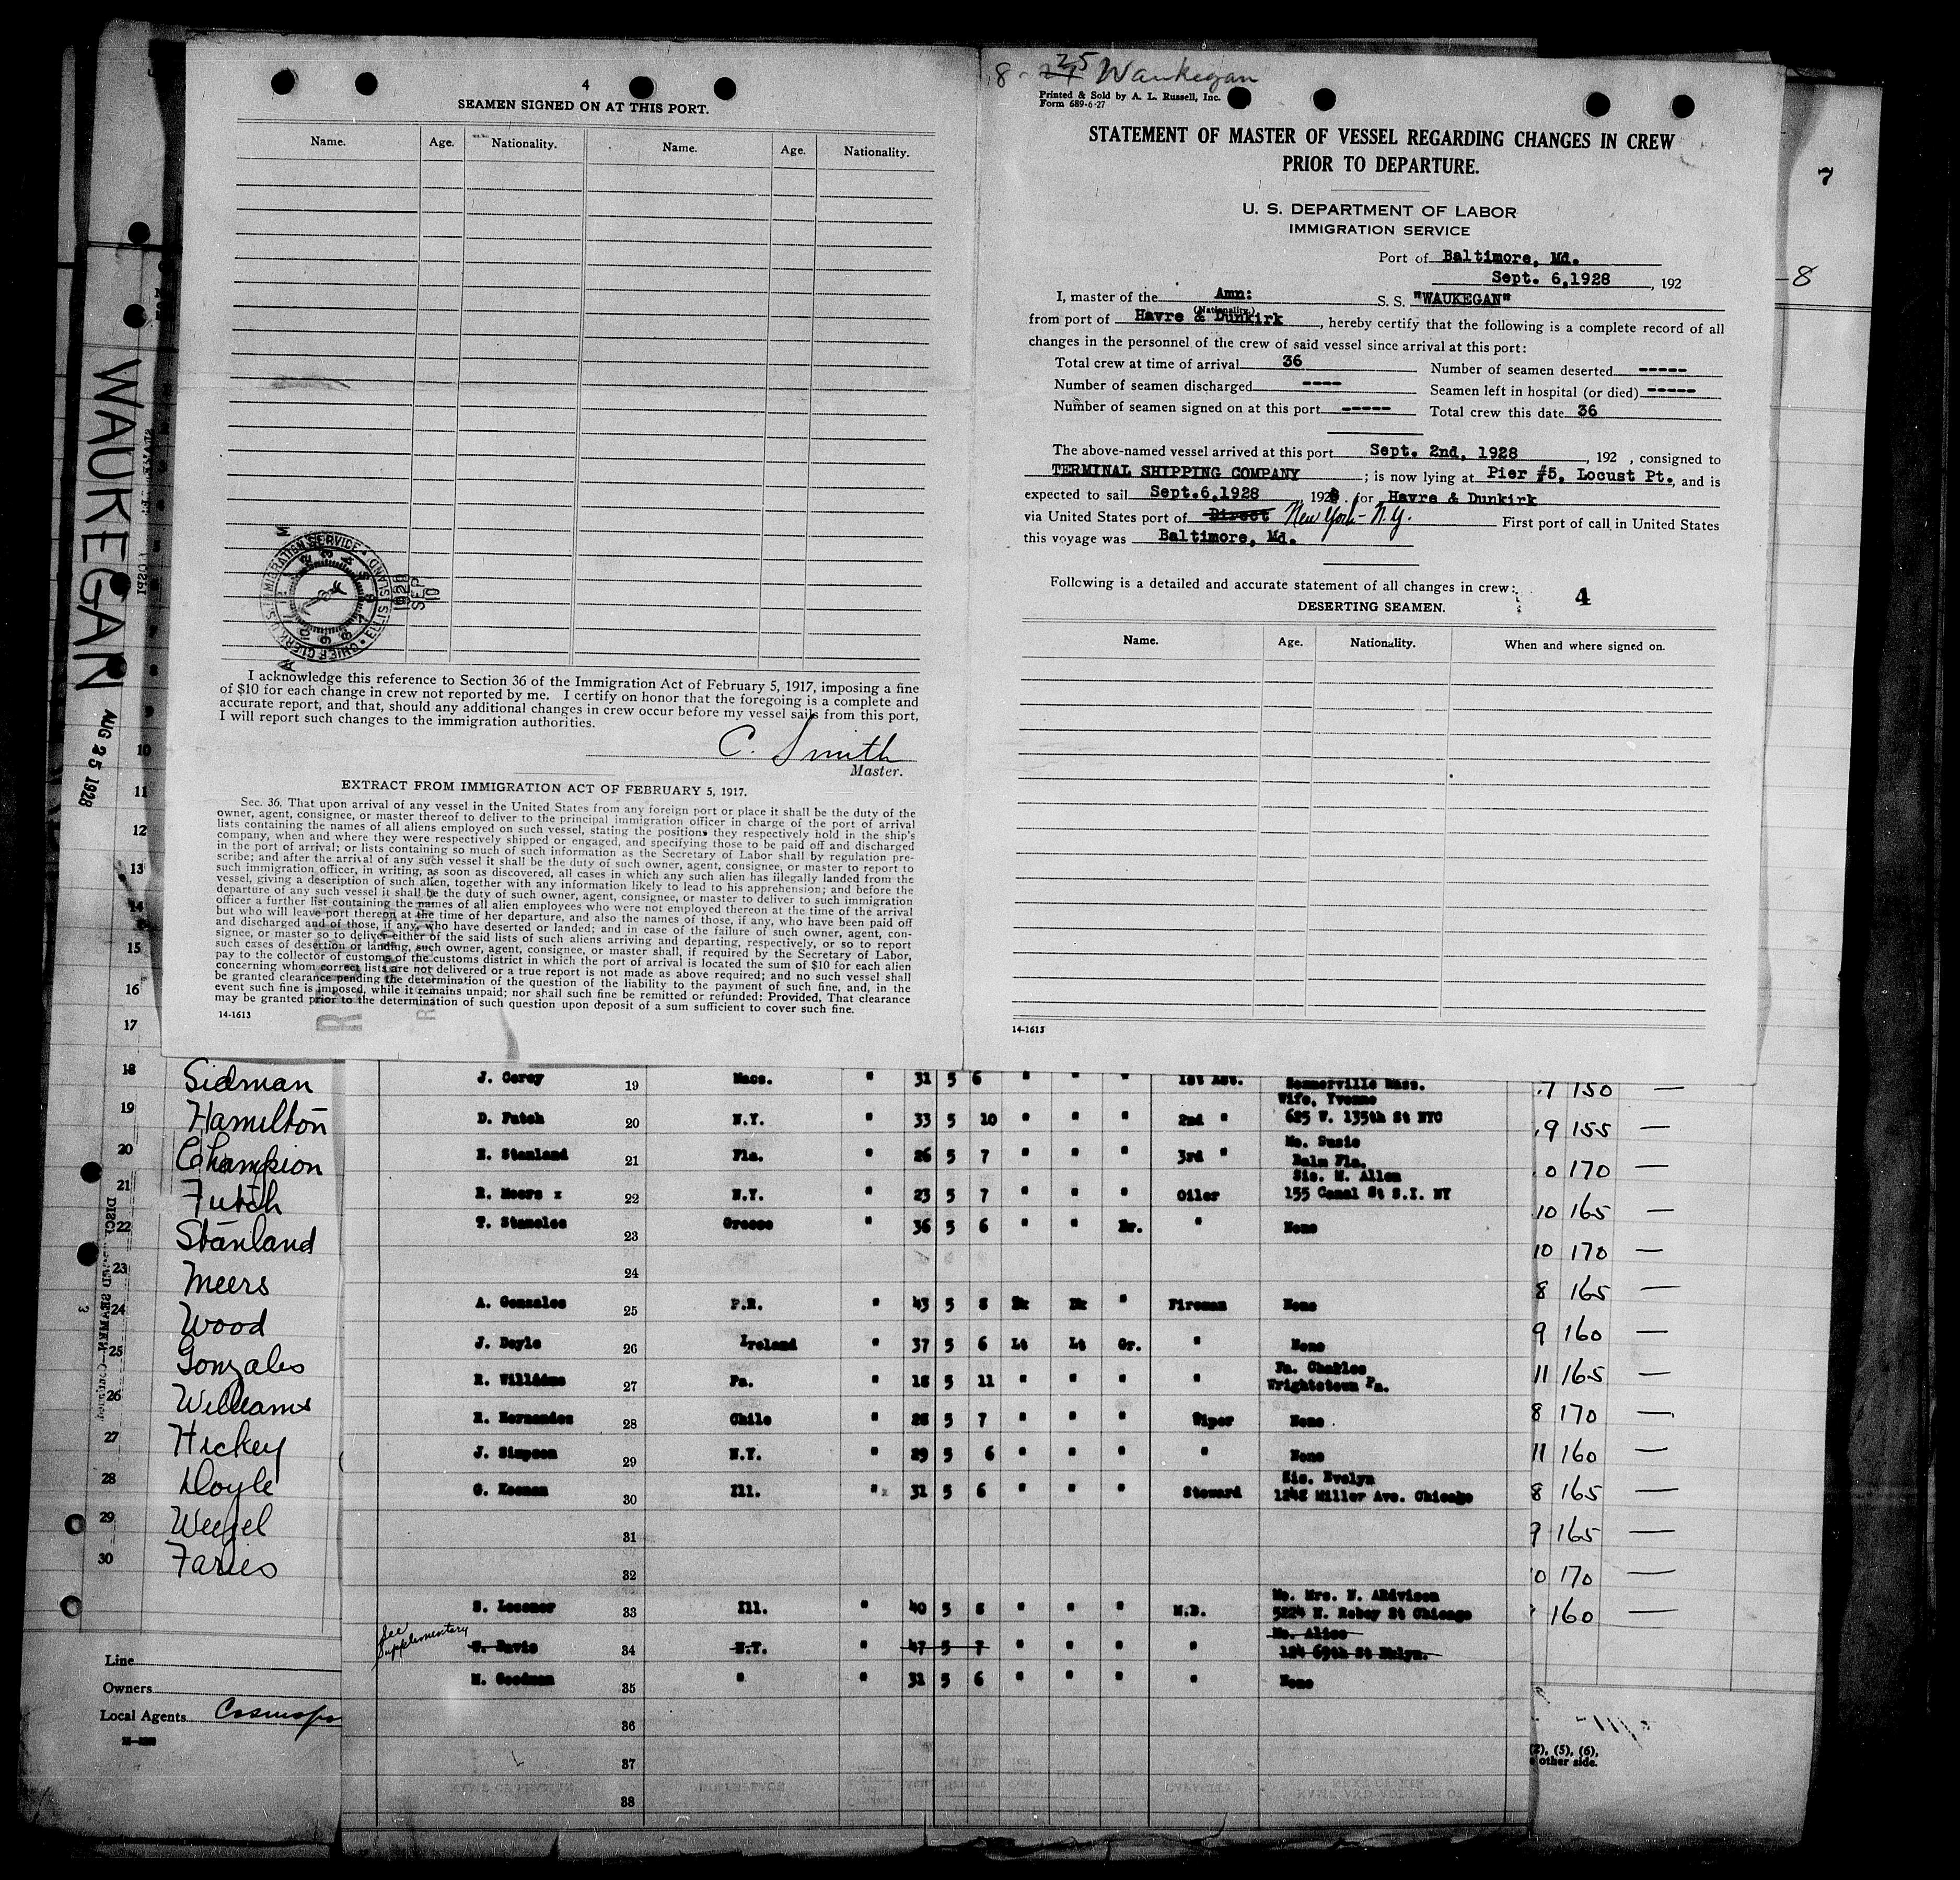 4
SEAMEN SIGNED ON AT THIS PORT.
Name. Age. Nationality. Name. Age. Nationality.
CHIEF CLERK U.S. IMMIGRATION SERVICE ELLIS ISLAND
1928 SEP 10
I acknowledge this reference to Section 36 of the Immigration Act of February 5, 1917, imposing a fine
of $10 for each change in crew not reported by me. I certify on honor that the foregoing is a complete and
accurate report, and that, should any additional changes in crew occur before my vessel sails from this port,
I will report such changes to the immigration authorities.
C. Smith
Master.
EXTRACT FROM IMMIGRATION ACT OF FEBRUARY 5, 1917.
Sec. 36. That upon arrival of any vessel in the United States from any foreign port or place it shall be the duty of the
owner, agent, consignee, or master thereof to deliver to the principal immigration officer in charge of the port of arrival
lists containing the names of all aliens employed on such vessel, stating the positions they respectively hold in the ship's
company, when and where they were respectively shipped or engaged, and specifying those to be paid off and discharged
in the port of arrival; or lists containing so much of such information as the Secretary of Labor shall by regulation pre-
scribe; and after the arrival of any such vessel it shall be the duty of such owner, agent, consignee, or master to report to
such immigration officer, in writing, as soon as discovered, all cases in which any such alien has illegally landed from the
vessel, giving a description of such alien, together with any information likely to lead to his apprehension; and before the
departure of any such vessel it shall be the duty of such owner, agent, consignee, or master to deliver to such immigration
officer a further list containing the names of all alien employees who were not employed thereon at the time of the arrival
but who will leave port thereon at the time of her departure, and also the names of those, if any, who have been paid off
and discharged and of those, if any, who have deserted or landed; and in case of the failure of such owner, agent, con-
signee, or master so to deliver either of the said lists of such aliens arriving and departing, respectively, or so to report
such cases of desertion or landing, such owner, agent, consignee, or master shall, if required by the Secretary of Labor,
pay to the collector of customs of the customs district in which the port of arrival is located the sum of $10 for each alien
concerning whom correct lists are not delivered or a true report is not made as above required; and no such vessel shall
be granted clearance pending the determination of the question of the liability to the payment of such fine, and, in the
event such fine is imposed, while it remains unpaid; nor shall such fine be remitted or refunded: Provided, That clearance
may be granted prior to the determination of such question upon deposit of a sum sufficient to cover such fine.
14-1613
8-25 Waukegan
Printed & Sold by A. L. Russell, Inc.
Form 689-6-27
STATEMENT OF MASTER OF VESSEL REGARDING CHANGES IN CREW
PRIOR TO DEPARTURE.
U. S. DEPARTMENT OF LABOR
IMMIGRATION SERVICE
Port of Baltimore, Md.
Sept. 6,1928, 192
I, master of the Amn: S. S. "WAUKEGAN"
(Nationality.)
from port of Havre & Dunkirk, hereby certify that the following is a complete record of all
changes in the personnel of the crew of said vessel since arrival at this port:
Total crew at time of arrival 36 Number of seamen deserted -----
Number of seamen discharged ---- Seamen left in hospital (or died) -----
Number of seamen signed on at this port ----- Total crew this date 36
The above-named vessel arrived at this port Sept. 2nd, 1928, 192 , consigned to
TERMINAL SHIPPING COMPANY; is now lying at Pier #5, Locust Pt., and is
expected to sail Sept.6,1928, 1928. for Havre & Dunkirk
via United States port of Direct New York - N.Y. First port of call in United States
this voyage was Baltimore, Md.
Following is a detailed and accurate statement of all changes in crew:
4
DESERTING SEAMEN.
Name. Age. Nationality. When and where signed on.
14-1613
7
8
WAUKEGAN
AUG 25 1928
8
9
10
11
12
13
14
15
16
17
18 Sidman
19 Hamilton
20 Champion
21 Futch
22 Stanland
23 Meers
24 Wood
25 Gonzales
26 Williams
27 Hickey
28 Doyle
29 Weigel
30 Faries
Line
Owners
Local Agents Cosmopo
J. Corey 19 Mass. " 31 5 6 " " " 1st Ast. Sommerville Mass.
D. Futch 20 N.Y. " 33 5 10 " " " 2nd " Wife, Yvonne
625 W. 135th St NYC
H. Stanland 21 Fla. " 26 5 7 " " " 3rd " Mo. Susie
Balm Fla.
R. Meers x 22 N.Y. " 23 5 7 " " " Oiler Sis. M. Allen
155 Canal St S.I. NY
T. Stamelos 23 Greece " 36 5 6 " " Br. " None
24
A. Gonzales 25 P.R. " 43 5 8 Dk Dk " Fireman None
J. Doyle 26 Ireland " 37 5 6 Lt Lt Gr. " None
R. Williams 27 Pa. " 18 5 11 " " " " Fa. Charles
Wrightstown Pa.
R. Hernandez 28 Chile " 28 5 7 " " " Wiper None
J. Simpson 29 N.Y. " 29 5 6 " " " " None
G. Keenan 30 Ill. " 31 5 6 " " " Steward Sis. Evelyn
1248 Miller Ave. Chicago
31
32
S. Lessner 33 Ill. " 40 5 8 " " " M.B. Mo. Mrs. N.
5224 N. Robey St Chicago
See Supplementary Davis 34 N.Y. " 47 5 7 " " " " Mo. Alice
124 69th St Bklyn.
M. Goodman 35 " " 31 5 6 " " " " None
36
37
38
.7 150 —
.9 155 —
0 170 —
10 165 —
10 170 —
8 165 —
9 160 —
11 165 —
8 170 —
11 160 —
8 165 —
9 165 —
0 170 —
160 —
(2), (5), (6),
other side.